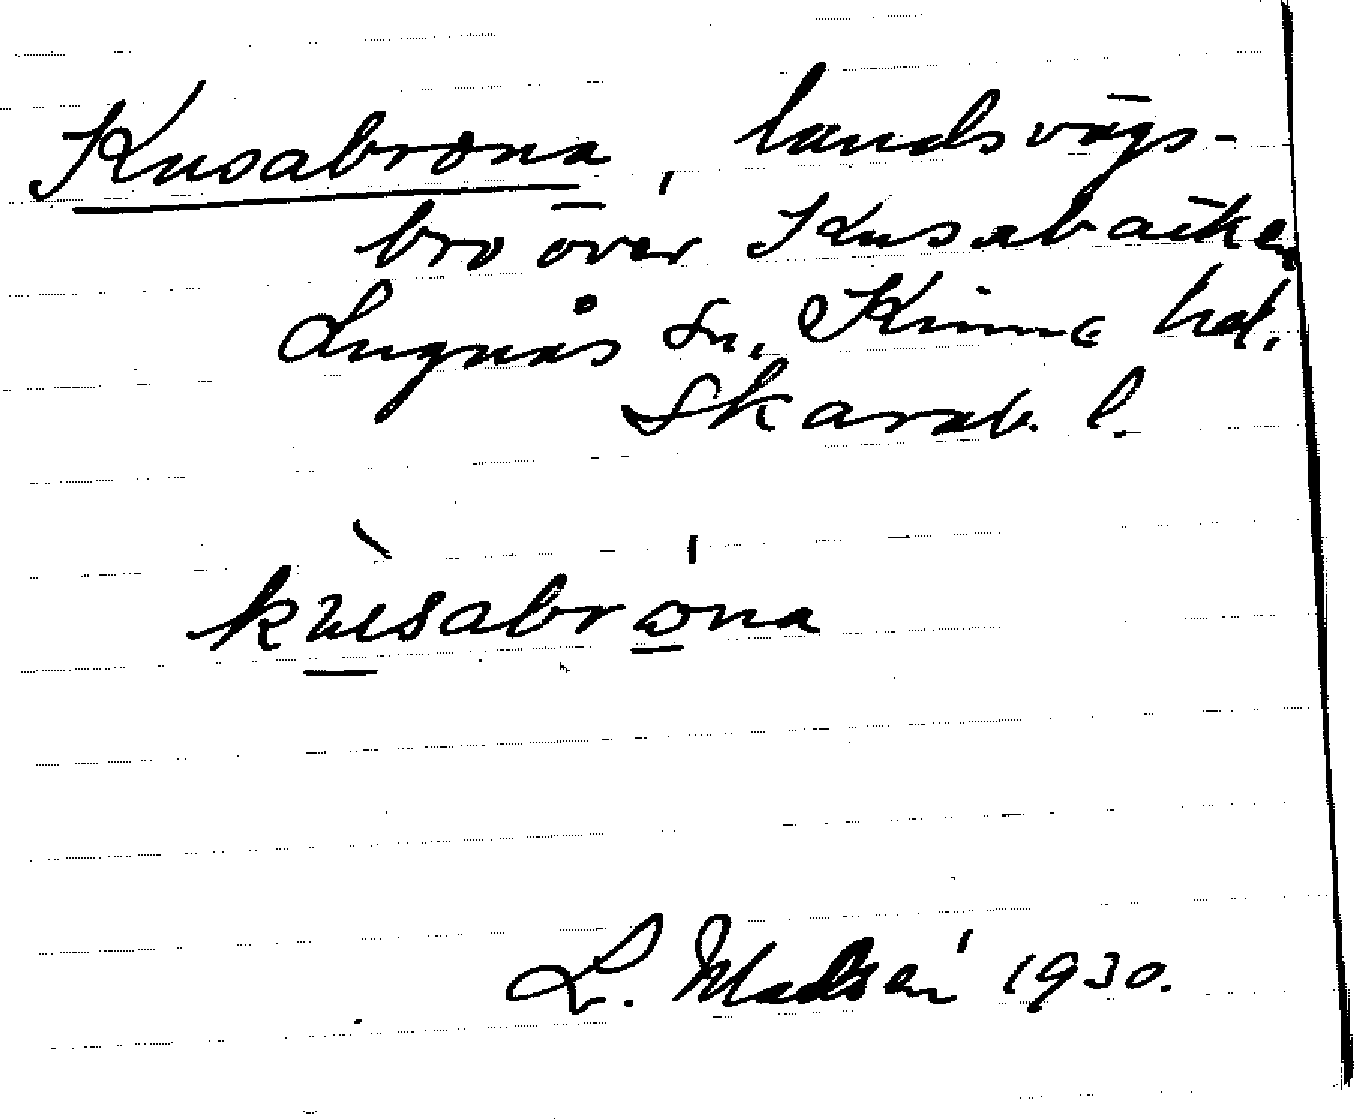 Kusabrona landsvägs-
bro över Kusabäcken
Lugnås sn, Kinne hd.
Skarab. l.
kùsabróna
L. Madsén 1930.